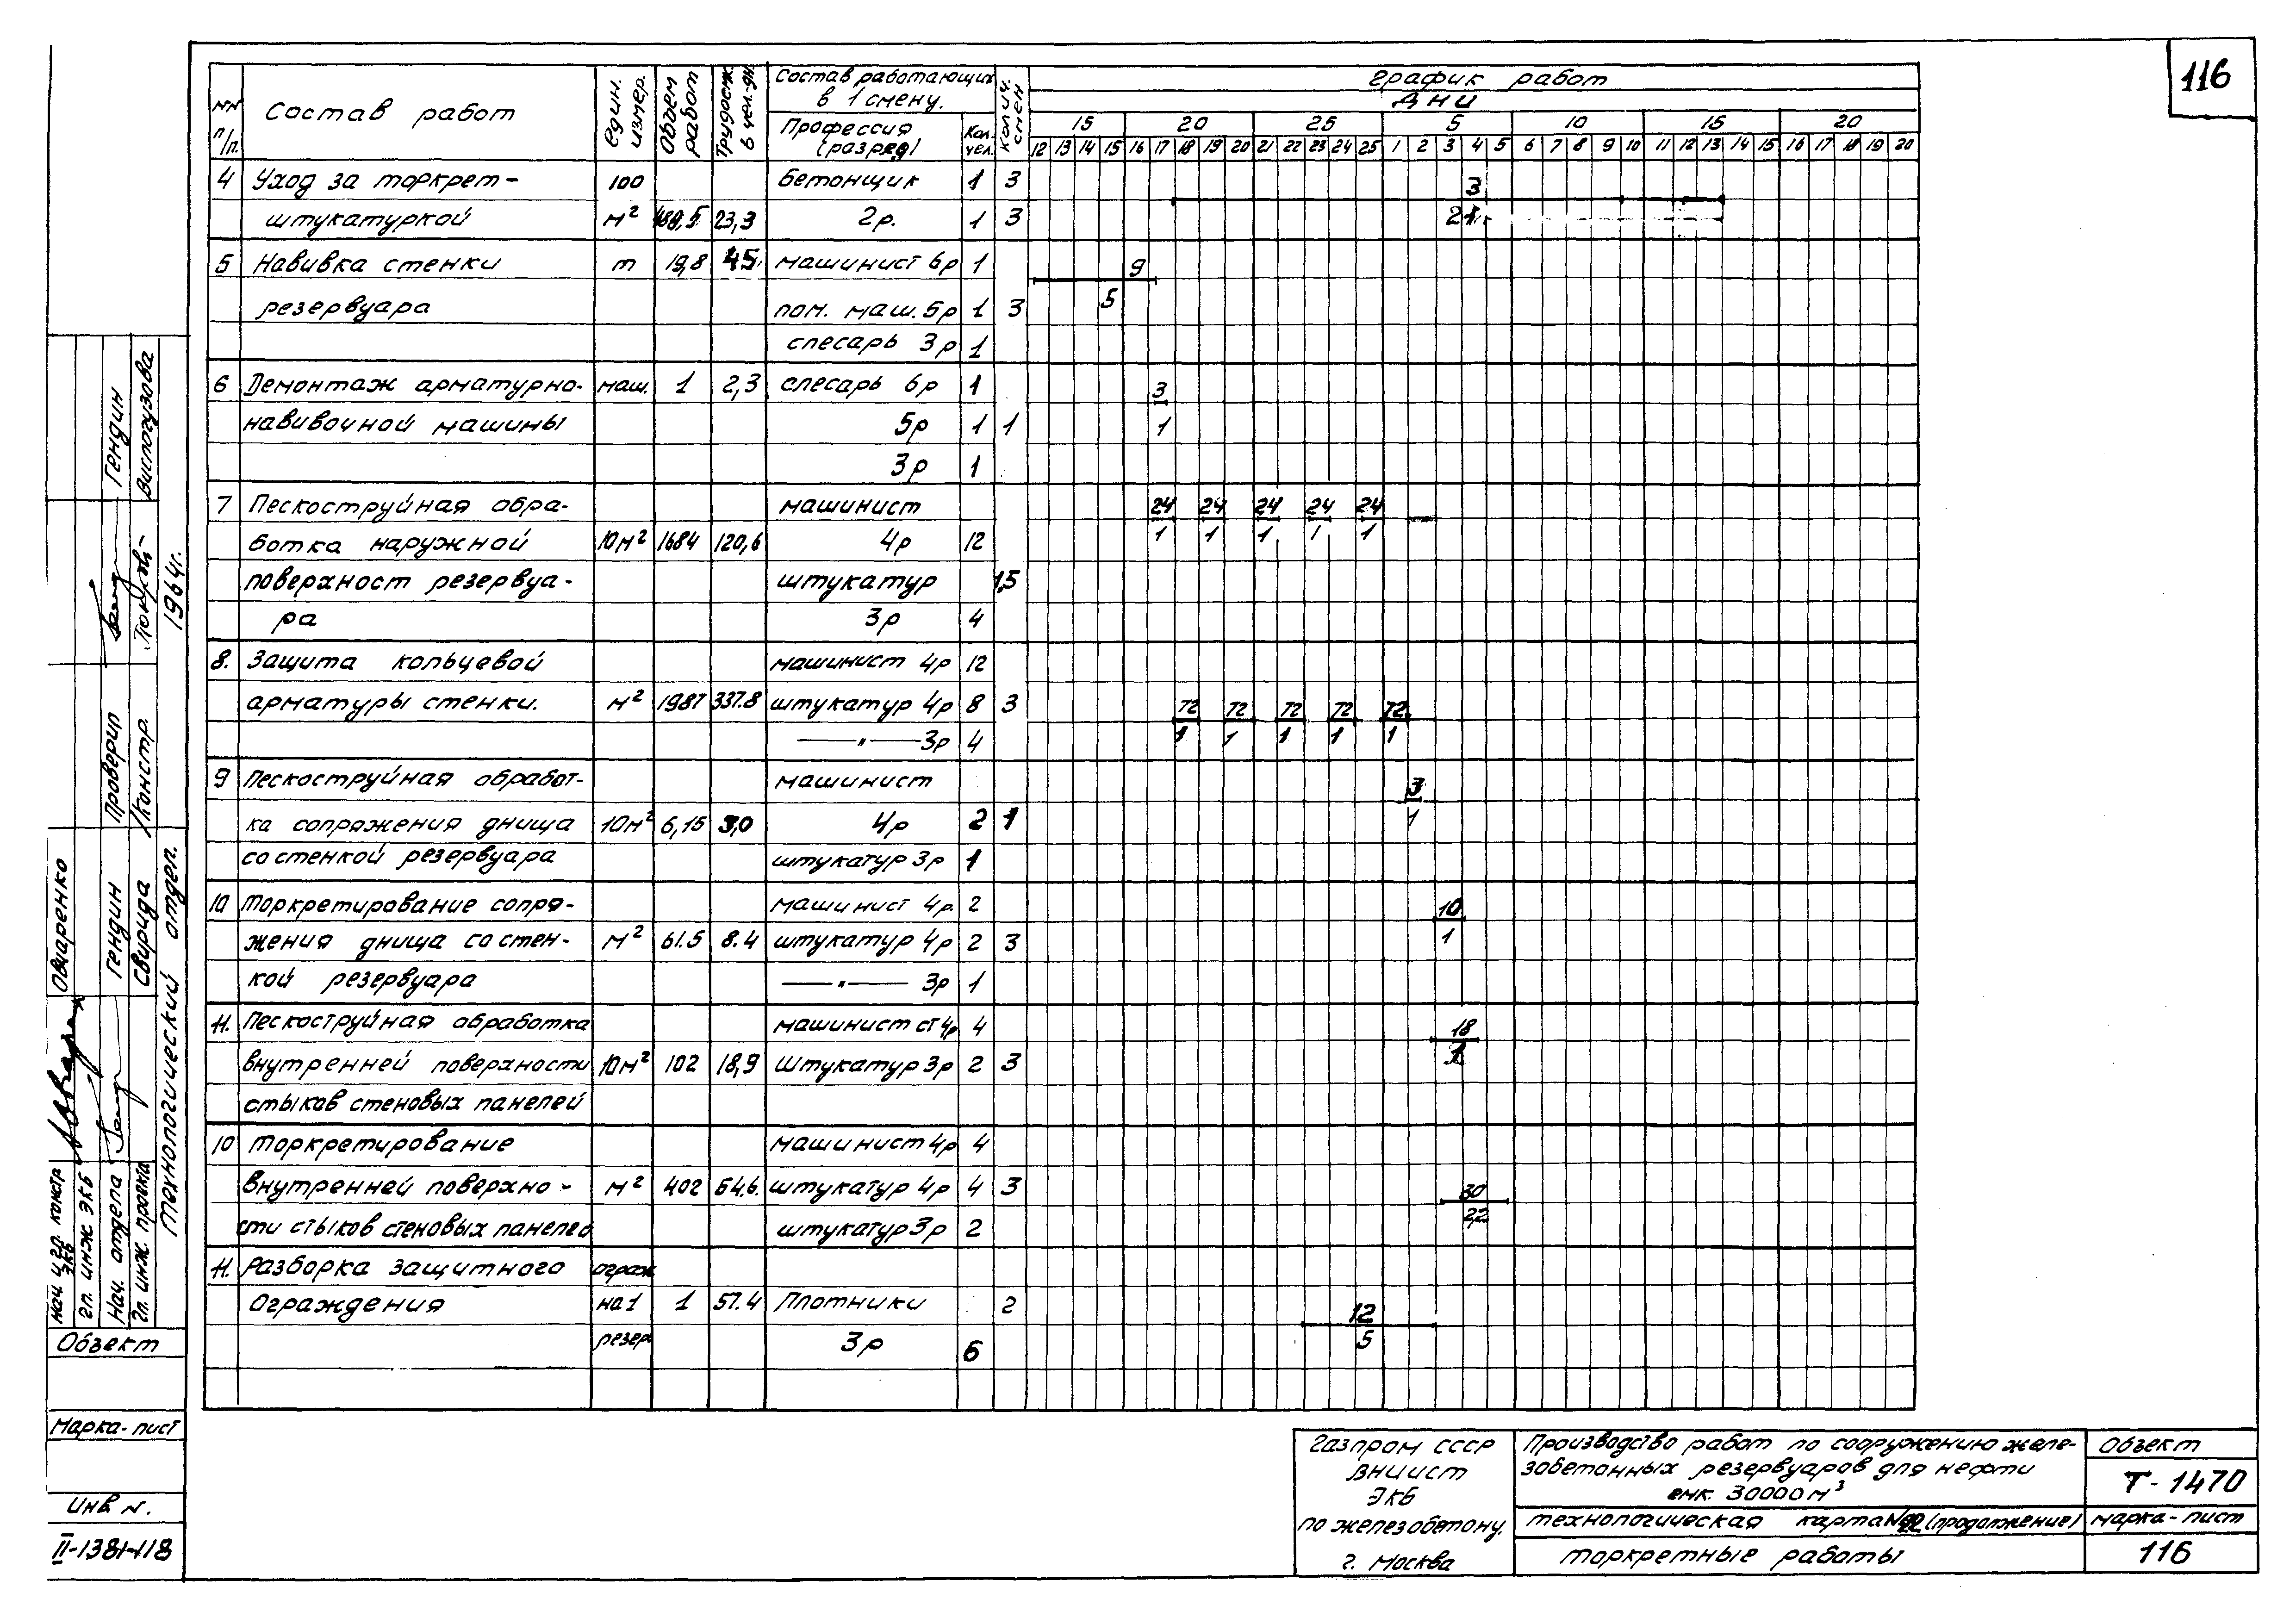 116
NN п/п.
Состав работ
един. измер.
Объем работ
Трудоемк. в чел.-дн.
Состав работающих в 1 смену.
Профессия (разряд)
Кол. чел.
колич. смен
График работ
Дни
15 20 25 5 10 15 20
12 13 14 15 16 17 18 19 20 21 22 23 24 25 1 2 3 4 5 6 7 8 9 10 11 12 13 14 15 16 17 18 19 20
4 Уход за торкрет- 100 бетонщик 1 3 3
штукатуркой м² 489,5 23,9 2р. 1 3 21
5 Навивка стенки т 19,8 45 машинист 6р 1 9
резервуара пом. маш. 5р 1 3 5
слесарь 3р 1
6 Демонтаж арматурно- маш. 1 2,3 слесарь 6р 1 3
навивочной машины 5р 1 1 1
3р 1
7 Пескоструйная обра- машинист 24 24 24 24 24
ботка наружной 10м² 1684 120,6 4р 12 1 1 1 1 1
поверхност резервуа- штукатур 1,5
ра 3р 4
8. Защита кольцевой машинист 4р 12
арматуры стенки. м² 1987 337.8 штукатур 4р 8 3 72 72 72 72 72
—"— 3р 4 1 1 1 1 1
9 Пескоструйная обработ- машинист 3
ка сопряжения днища 10м² 6,15 3,0 4р 2 1 1
со стенкой резервуара штукатур 3р 1
10 Торкретирование сопря- машинист 4р. 2 10
жения днища со стен- м² 61.5 8.4 штукатур 4р 2 3 1
кой резервуара —"— 3р 1
11. Пескоструйная обработка машинист ст 4р 4 18
внутренней поверхности 10м² 102 18,9 Штукатур 3р 2 3
стыков стеновых панелей
10 Торкретирование машинист 4р 4
внутренней поверхно- м² 402 54,6. штукатур 4р 4 3 30
сти стыков стеновых панелей штукатур 3р 2 22
11. Разборка защитного ограж
Ограждения на 1 1 57.4 Плотники 2 12
резер. 3р 6 5
Гендин
Вислогузова
1964г.
Проверил
Констр.
Овчаренко
Гендин
Свирида
Технологический отдел.
Нач. и гл. констр ЭКБ
Гл. инж ЭКБ
Нач. отдела
Гл. инж. проекта
Объект
Марка-лист
Инв N.
II-1381-118
Газпром СССР
ВНИИСТ
ЭКБ
по железобетону.
г. Москва
Производство работ по сооружению желе-
зобетонных резервуаров для нефти
емк. 30000м³
технологическая карта №22 (продолжение)
торкретные работы
Объект
Т-1470
марка-лист
116